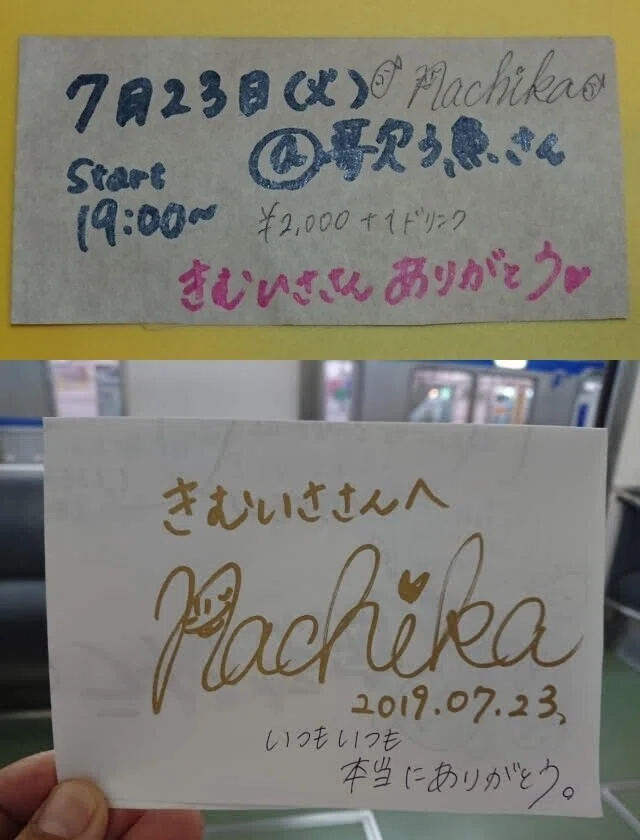 7月23日(火) Machika
@歌う魚さん
Start
19:00~
¥2,000 +1ドリンク
きむいささん ありがとう♥
きむいささんへ
Machika
2019.07.23.
いつもいつも
本当にありがとう。